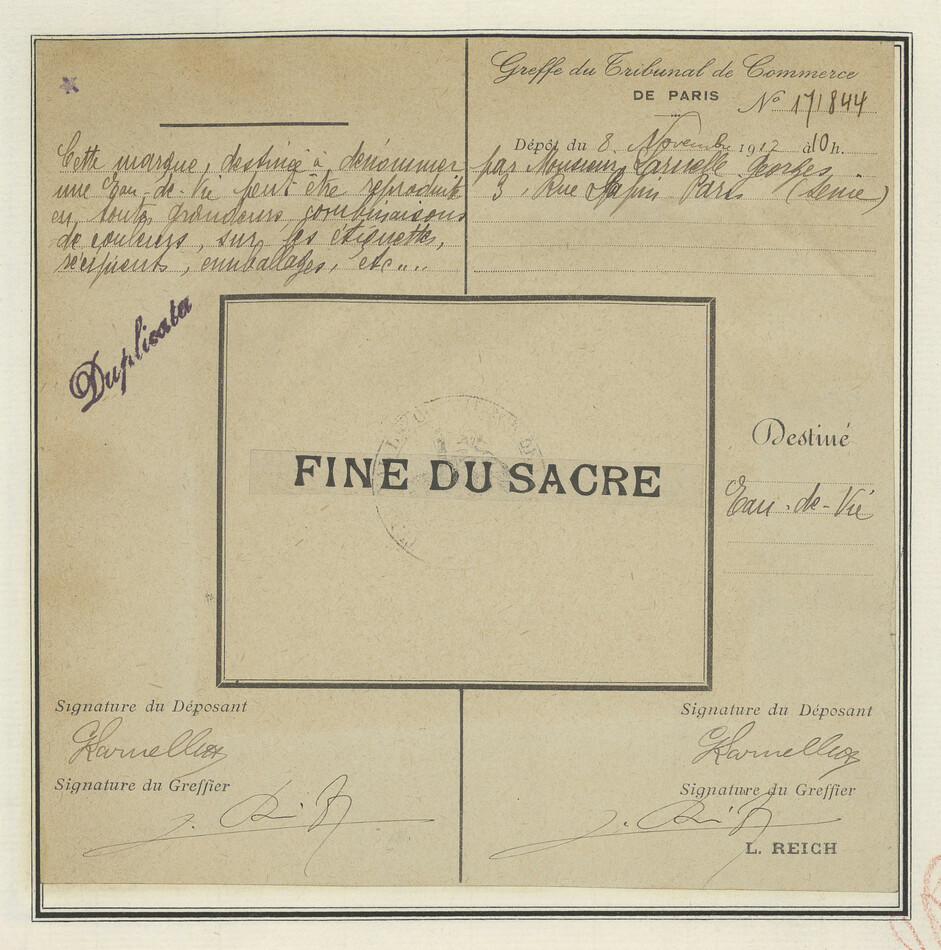 Greffe du Tribunal de Commerce
DE PARIS
No 171844
Dépôt du 8 Novembre 1912 à 10 h.
par Monsieur Larnelle Georges
3, Rue Paris (Seine)
Cette marque, destinée à dénommer
une Eau-de-Vie peut être reproduite
en toutes grandeurs combinaisons
de couleurs, sur les étiquettes,
récipients, emballages, etc....
Duplicata
FINE DU SACRE
Destiné
Eau-de-Vie
Signature du Déposant
Signature du Greffier
Signature du Déposant
Signature du Greffier
L. REICH